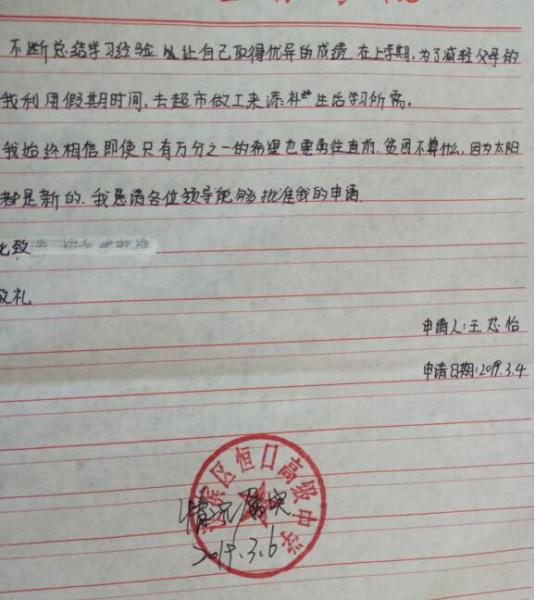 不断总结学习经验 以让自己取得优异的成绩 在上学期,为了减轻父母的
我利用假期时间,去超市做工来添补生活学习所需。
我始终相信即使只有万分之一的希望也要勇往直前,贫困不算什么,因为太阳
都是新的.我恳请各位领导能够批准我的申请
此致
敬礼
申请人:王芯怡
申请日期:2019.3.4
汉滨区恒口高级中学
情况属实
2019.3.6